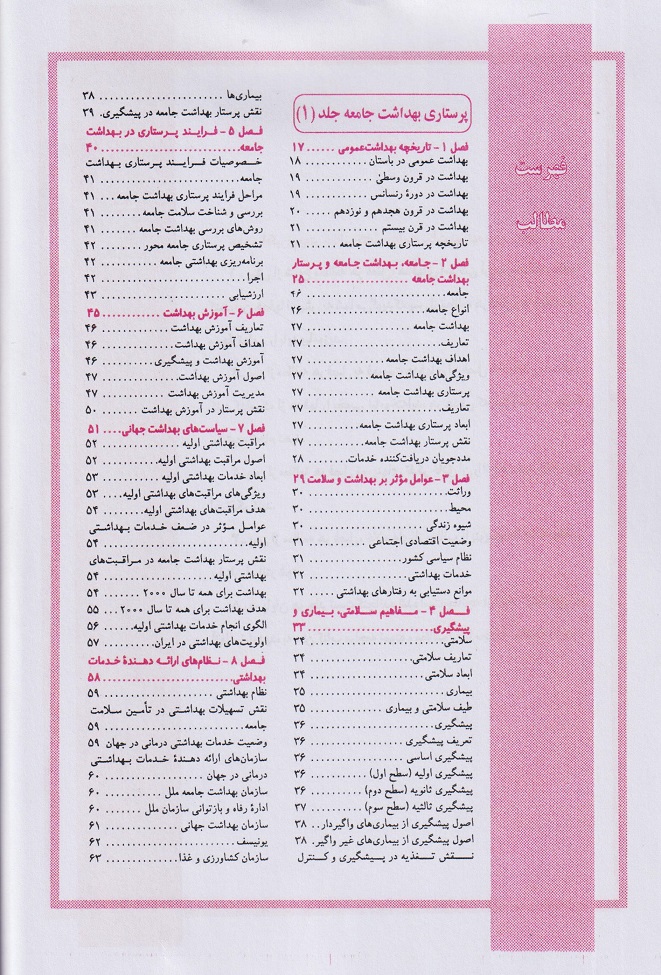 فهرست
مطالب
پرستاری بهداشت جامعه جلد (۱)
فصل ۱- تاریخچه بهداشت‌عمومی ...... ۱۷
بهداشت عمومی در باستان ........... ۱۸
بهداشت در قرون وسطیٰ ............ ۱۹
بهداشت در دورهٔ رنسانس ............ ۱۹
بهداشت در قرون هجدهم و نوزدهم .... ۲۰
بهداشت در قرن بیستم ............. ۲۱
تاریخچه پرستاری بهداشت جامعه ...... ۲۱
فصل ۲- جامعه، بهداشت جامعه و پرستار
بهداشت جامعه .................... ۲۵
جامعه .......................... ۲۶
انواع جامعه ...................... ۲۶
بهداشت جامعه .................... ۲۷
تعاریف .......................... ۲۷
اهداف بهداشت جامعه .............. ۲۷
ویژگی‌های بهداشت جامعه ............ ۲۷
پرستاری بهداشت جامعه ............. ۲۷
تعاریف .......................... ۲۷
ابعاد پرستاری بهداشت جامعه .......... ۲۷
نقش پرستار بهداشت جامعه ........... ۲۷
مددجویان دریافت‌کننده خدمات ........ ۲۸
فصل ۳- عوامل مؤثر بر بهداشت و سلامت ۲۹
وراثت ........................... ۳۰
محیط ........................... ۳۰
شیوه زندگی ...................... ۳۰
وضعیت اقتصادی اجتماعی ............ ۳۱
نظام سیاسی کشور ................. ۳۱
خدمات بهداشتی ................... ۳۲
موانع دستیابی به رفتارهای بهداشتی ..... ۳۲
فصل ۴- مفاهیم سلامتی، بیماری و
پیشگیری ........................ ۳۳
سلامتی .......................... ۳۴
تعاریف سلامتی .................... ۳۴
ابعاد سلامتی ...................... ۳۴
بیماری .......................... ۳۵
طیف سلامتی و بیماری .............. ۳۵
پیشگیری ........................ ۳۶
تعریف پیشگیری ................... ۳۶
پیشگیری اساسی ................... ۳۶
پیشگیری اولیه (سطح اول) ............ ۳۶
پیشگیری ثانویه (سطح دوم) ........... ۳۶
پیشگیری ثالثیه (سطح سوم) ........... ۳۷
اصول پیشگیری از بیماری‌های واگیردار .. ۳۸
اصول پیشگیری از بیماری‌های غیر واگیر. ۳۸
نقش تغذیه در پیشگیری و کنترل
بیماری‌ها ........................ ۳۸
نقش پرستار بهداشت جامعه در پیشگیری. ۳۹
فصل ۵- فرایند پرستاری در بهداشت
جامعه .......................... ۴۰
خصوصیات فرایند پرستاری بهداشت
جامعه .......................... ۴۱
مراحل فرایند پرستاری بهداشت جامعه ... ۴۱
بررسی و شناخت سلامت جامعه ........ ۴۱
روش‌های بررسی بهداشت جامعه ........ ۴۱
تشخیص پرستاری جامعه محور ......... ۴۲
برنامه‌ریزی بهداشتی جامعه ........... ۴۲
اجرا ............................ ۴۲
ارزشیابی ........................ ۴۳
فصل ۶- آموزش بهداشت ............ ۴۵
تعاریف آموزش بهداشت ............. ۴۶
اهداف آموزش بهداشت .............. ۴۶
آموزش بهداشت و پیشگیری ........... ۴۶
اصول آموزش بهداشت .............. ۴۷
مدیریت آموزش بهداشت ............. ۴۷
نقش پرستار در آموزش بهداشت ........ ۵۰
فصل ۷- سیاست‌های بهداشت جهانی .... ۵۱
مراقبت بهداشتی اولیه ............... ۵۲
اصول مراقبت بهداشتی اولیه ........... ۵۲
ابعاد خدمات بهداشتی اولیه ........... ۵۳
ویژگی‌های مراقبت‌های بهداشتی اولیه .... ۵۳
هدف مراقبت‌های بهداشتی اولیه ........ ۵۴
عوامل مؤثر در ضعف خدمات بهداشتی
اولیه ........................... ۵۴
نقش پرستار بهداشت جامعه در مراقبت‌های
بهداشتی اولیه .................... ۵۴
بهداشت برای همه تا سال ۲۰۰۰ ........ ۵۴
هدف بهداشت برای همه تا سال ۲۰۰۰ ... ۵۵
الگوی انجام خدمات بهداشتی اولیه ...... ۵۶
اولویت‌های بهداشتی در ایران .......... ۵۷
فصل ۸- نظام‌های ارائه دهندهٔ خدمات
بهداشتی ........................ ۵۸
نظام بهداشتی .................... ۵۹
نقش تسهیلات بهداشتی در تأمین سلامت
جامعه .......................... ۵۹
وضعیت خدمات بهداشتی درمانی در جهان ۵۹
سازمان‌های ارائه دهندهٔ خدمات بهداشتی
درمانی در جهان ................... ۶۰
سازمان بهداشت جامعه ملل ........... ۶۰
ادارهٔ رفاه و بازتوانی سازمان ملل ....... ۶۰
سازمان بهداشت جهانی .............. ۶۱
یونیسف ......................... ۶۲
سازمان کشاورزی و غذا .............. ۶۳